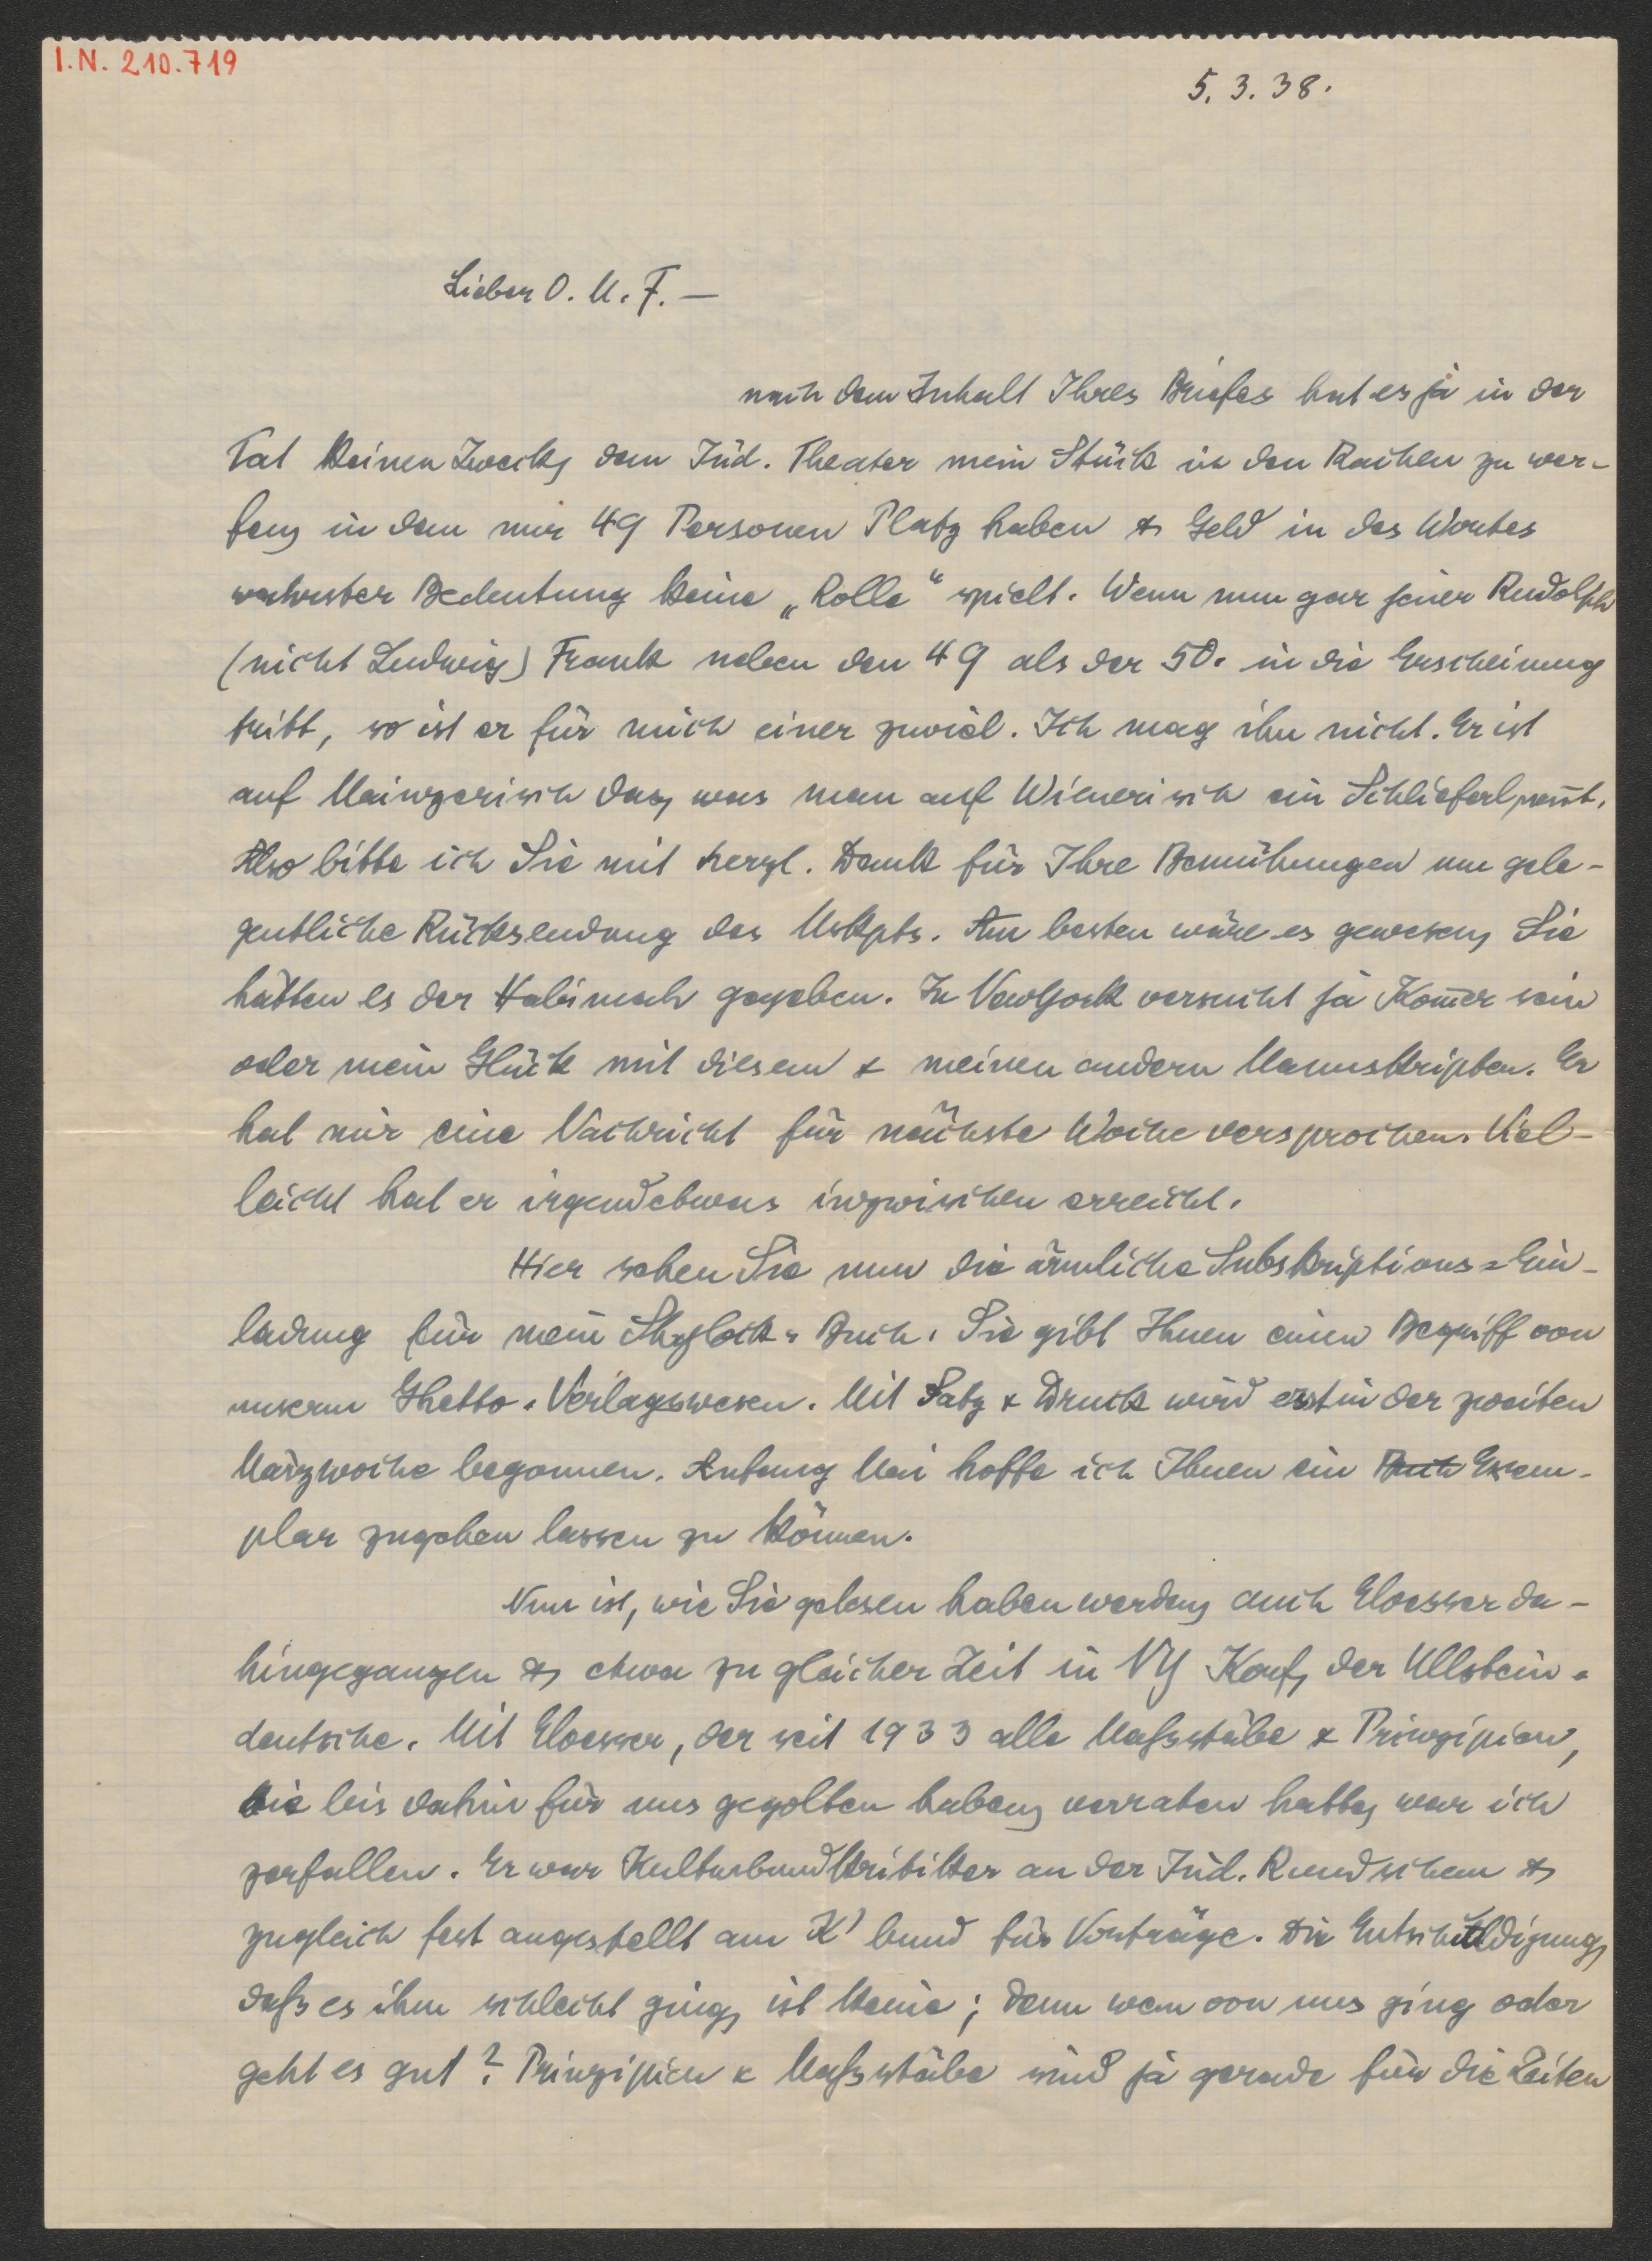 I.N. 210.719
5. 3. 38.
Lieber O. M. F. —
nach dem Inhalt Ihres Briefes hat es ja in der
Tat keinen Zweck, dem Jüd. Theater mein Stück in den Rachen zu wer-
fen, in dem nur 49 Personen Platz haben & Geld in des Wortes
wahrster Bedeutung keine „Rolle“ spielt. Wenn nun gar jener Rudolph
(nicht Ludwig) Frank neben den 49 als der 50. in die Erscheinung
tritt, so ist er für mich einer zuviel. Ich mag ihn nicht. Er ist
auf Mainzerisch das, was man auf Wienerisch ein Schlieferl nennt.
Also bitte ich Sie mit herzl. Dank für Ihre Bemühungen um gele-
gentliche Rücksendung des Mskpts. Am besten wäre es gewesen, Sie
hätten es der Habimah gegeben. In NewYork versucht ja Kom̄er sein
oder mein Glück mit diesem & meinen andern Manuskripten. Er
hat mir eine Nachricht für nächste Woche versprochen. Viel-
leicht hat er irgendetwas inzwischen erreicht.
Hier sehen Sie nun die ärmliche Subskriptions=Ein-
ladung für mein Shylock=Buch. Sie gibt Ihnen einen Begriff von
unserm Ghetto=Verlagswesen. Mit Satz & Druck wird erst in der zweiten
Märzwoche begonnen. Anfang Mai hoffe ich Ihnen ein Buch Exem-
plar zugehen lassen zu können.
Nun ist, wie Sie gelesen haben werden, auch Eloesser da-
hingegangen &, etwa zu gleicher Zeit in NY Korff, der Ullstein=
deutsche. Mit Eloesser, der seit 1933 alle Maßstäbe & Prinzipien,
die bis dahin für uns gegolten haben, verraten hatte, war ich
zerfallen. Er war Kulturbundkritiker an der Jüd. Rundschau &
zugleich fest angestellt am K'bund für Vorträge. Die Entschuldigung,
daß es ihm schlecht ging, ist keine; denn wem von uns ging oder
geht es gut? Prinzipien & Maßstäbe sind ja gerade für die Zeiten